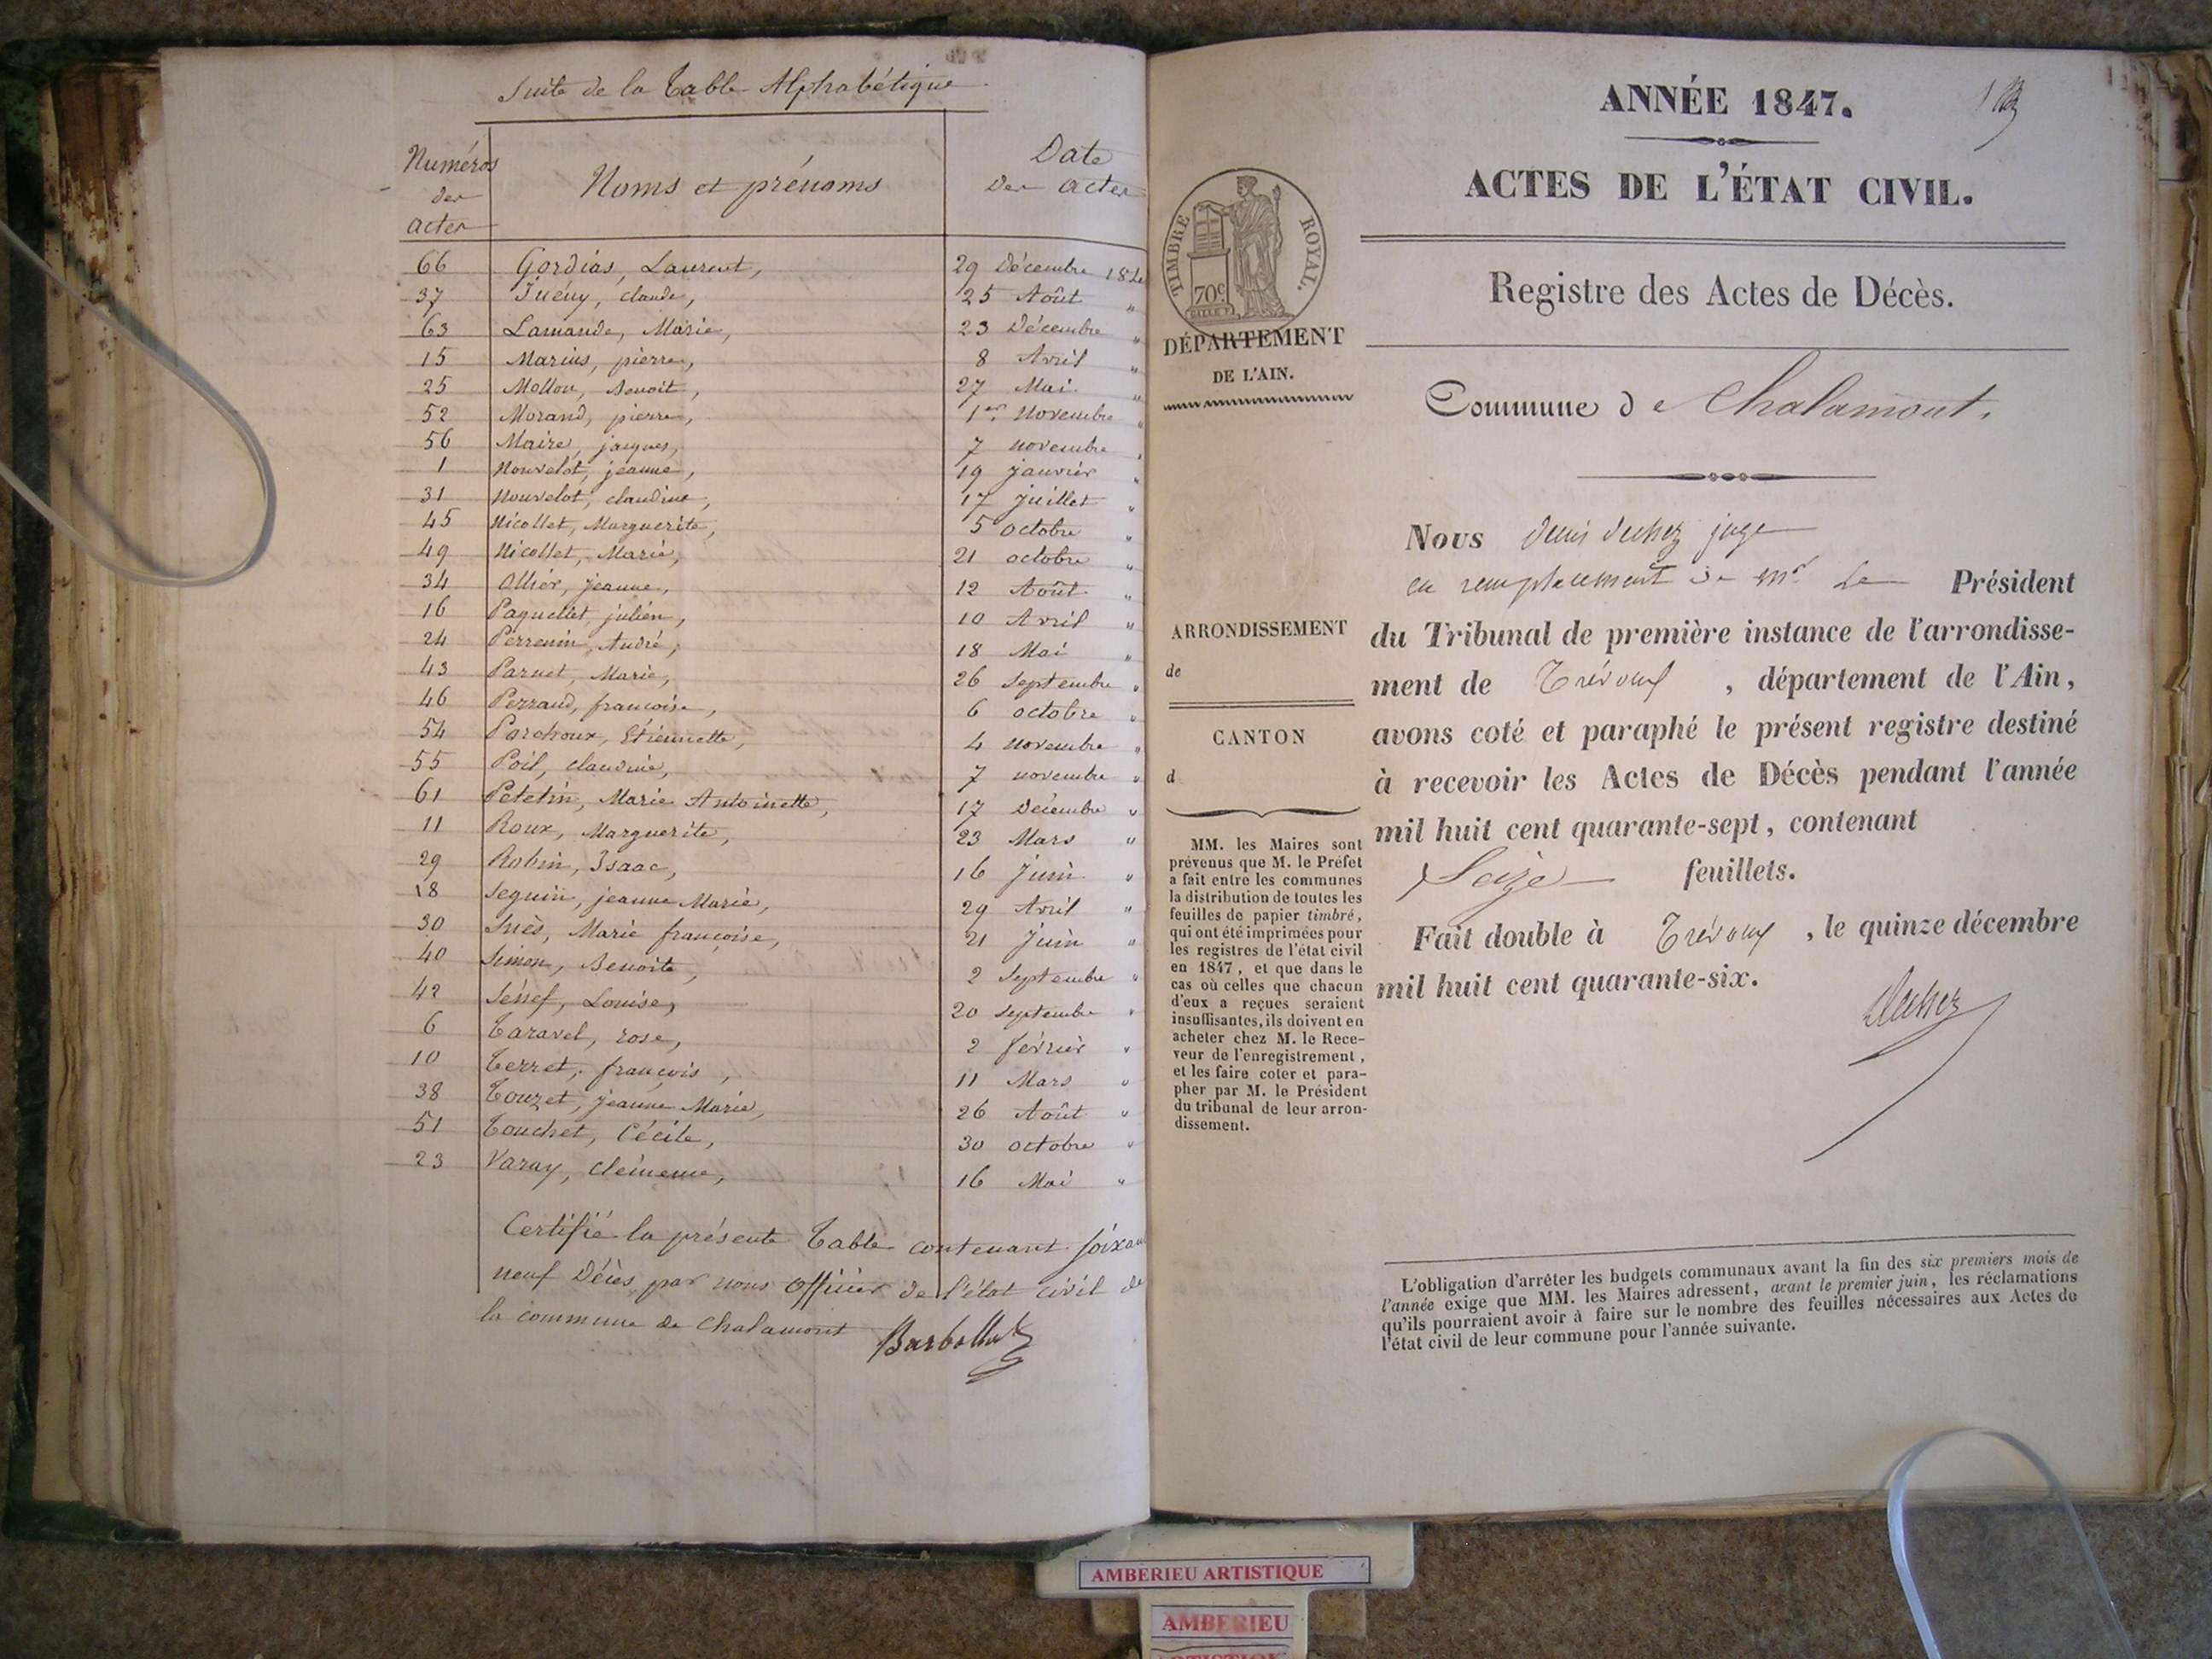 Suite de la Table Alphabétique
Numéros
des
actes
Noms et prénoms
Date
des actes
66 Gordias, Laurent, 29 Décembre 184
37 Juény, claude, 25 Août "
63 Lamande, Marie, 23 Décembre "
15 Marius, pierre, 8 Avril "
25 Mollon, Benoit, 27 Mai "
52 Morand, pierre, 1er Novembre "
56 Maire, jacques, 7 novembre "
1 Nouvelot, jeanne, 19 janvier "
31 Nouvelot, claudine, 17 juillet "
45 Nicollet, Marguerite, 5 octobre "
49 Nicollet, Marie, 21 octobre "
34 Ollier, jeanne, 12 Août "
16 Paquellet, julien, 10 Avril "
24 Perrenin, André, 18 Mai "
43 Parnet, Marie, 26 Septembre "
46 Perraud, francoise, 6 octobre "
54 Parchoux, Etiennette, 4 novembre "
55 Poil, claudine, 7 novembre "
61 Petetin, Marie Antoinette, 17 Décembre "
11 Roux, Marguerite, 23 Mars "
29 Robin, Isaac, 16 Juin "
18 Seguin, jeanne Marie, 29 Avril "
30 Marie françoise, 21 Juin "
40 Simon, Benoite, 2 Septembre "
42 Louise, 20 Septembre "
6 Taravel, rose, 2 février "
10 Terret, françois, 11 Mars "
38 Touzet, jeanne Marie, 26 Août "
51 Touchet, Cécile, 30 octobre "
23 Varay, Clémence, 16 Mai "
Certifié la présente Table contenant soixan
neuf Décès par nous officier de l'état civil de
la commune de Chalamont
ANNÉE 1847.
ACTES DE L'ÉTAT CIVIL.
Registre des Actes de Décès.
Commune de Chalamont.
TIMBRE ROYAL.
70c
DÉPARTEMENT
DE L'AIN.
ARRONDISSEMENT
de
CANTON
d
MM. les Maires sont
prévenus que M. le Préfet
a fait entre les communes
la distribution de toutes les
feuilles de papier timbré,
qui ont été imprimées pour
les registres de l'état civil
en 1847, et que dans le
cas où celles que chacun
d'eux a reçues seraient
insuffisantes, ils doivent en
acheter chez M. le Rece-
veur de l'enregistrement,
et les faire coter et para-
pher par M. le Président
du tribunal de leur arron-
dissement.
Nous denis dechez juge
en remplacement de Mr le Président
du Tribunal de première instance de l'arrondisse-
ment de Trévoux, département de l'Ain,
avons coté et paraphé le présent registre destiné
à recevoir les Actes de Décès pendant l'année
mil huit cent quarante-sept, contenant
Seize feuillets.
Fait double à Trévoux, le quinze décembre
mil huit cent quarante-six.
dechez
L'obligation d'arrêter les budgets communaux avant la fin des six premiers mois de
l'année exige que MM. les Maires adressent, avant le premier juin, les réclamations
qu'ils pourraient avoir à faire sur le nombre des feuilles nécessaires aux Actes de
l'état civil de leur commune pour l'année suivante.
AMBERIEU ARTISTIQUE
AMBERIEU
ARTISTIQUE